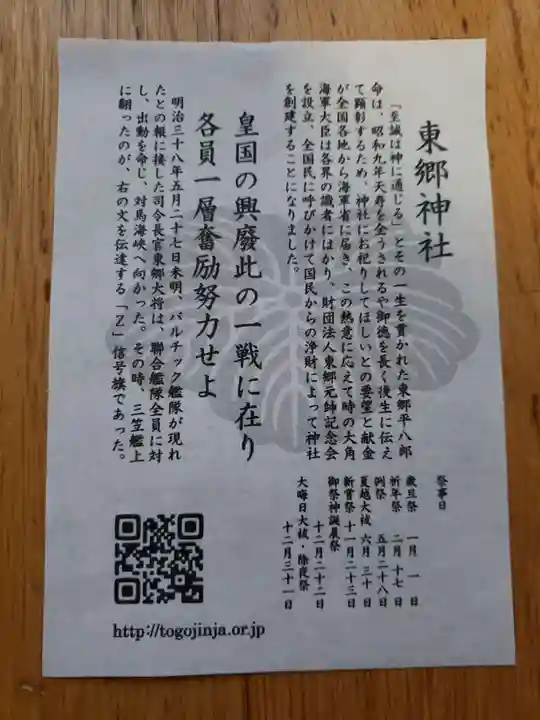 東郷神社
「至誠は神に通じる」とその一生を貫かれた東郷平八郎
命は、昭和九年天寿を全うされるや御徳を長く後生に伝え
て顕彰するため、神社にお祀りしてほしいとの要望と献金
が全国各地から海軍省に届き、この熱意に応えて時の大角
海軍大臣は各界の識者にはかり、財団法人東郷元帥記念会
を設立、全国民に呼びかけて国民からの浄財によって神社
を創建することになりました。
皇国の興廃此の一戦に在り
各員一層奮励努力せよ
明治三十八年五月二十七日未明、バルチック艦隊が現れ
たとの報に接した司令長官東郷大将は、聯合艦隊全員に対
し、出動を命じ、対馬海峡へ向かった。その時、三笠艦上
に翻ったのが、右の文を伝達する「Z」信号旗であった。
祭事日
歳旦祭 一月 一日
祈年祭 二月 十七日
例祭 五月二十八日
夏越大祓 六月 三十日
新嘗祭 十一月二十三日
御祭神誕晨祭
十二月二十二日
大晦日大祓・除夜祭
十二月三十一日
http://togojinja.or.jp